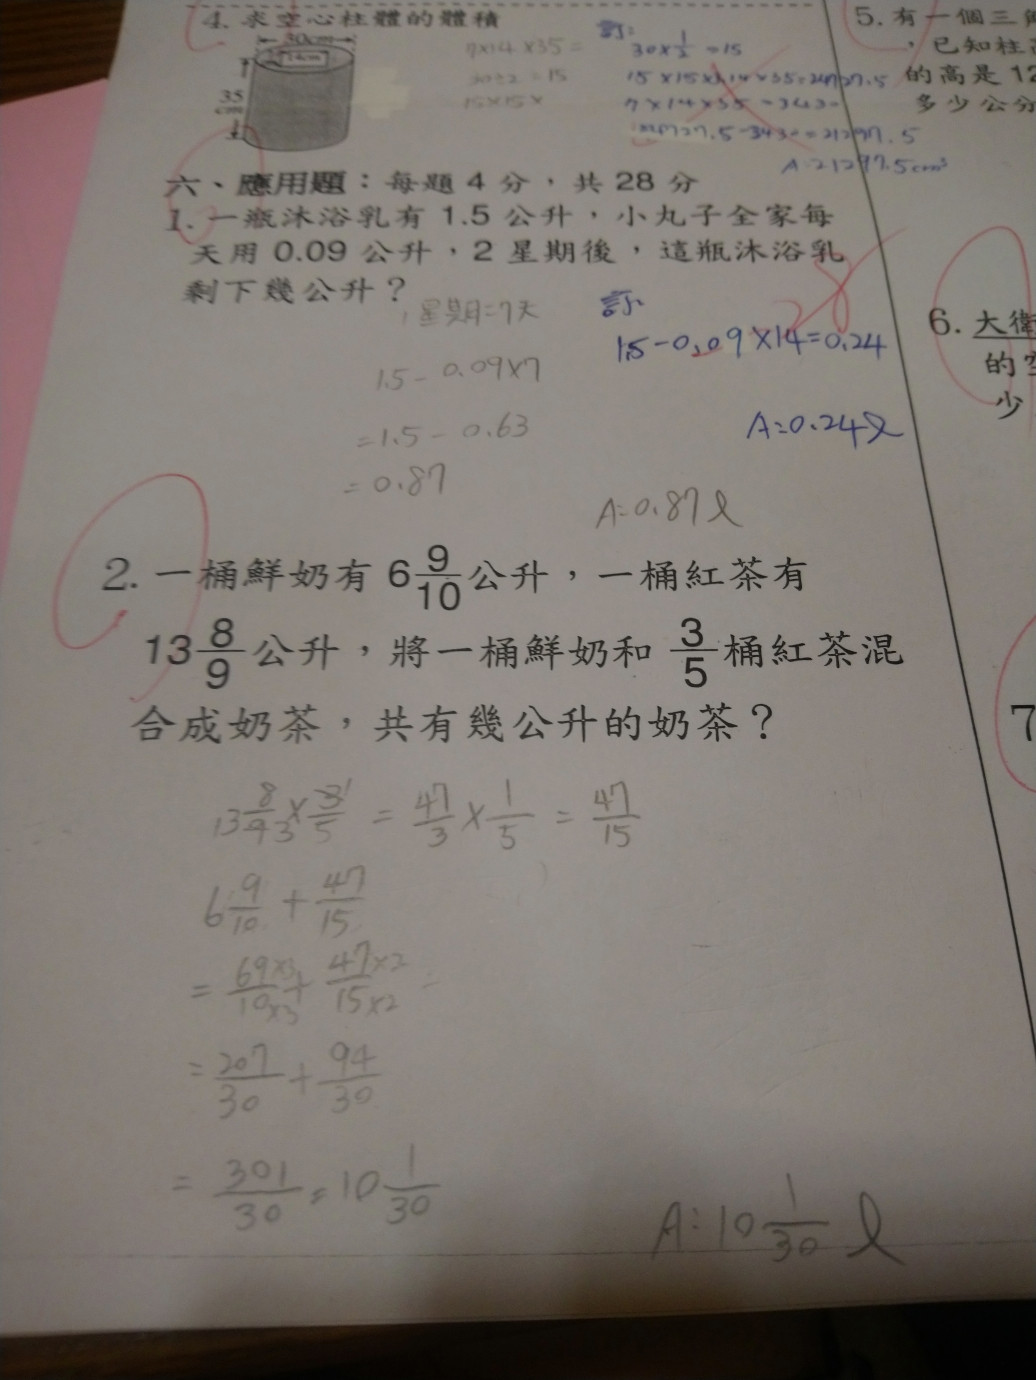 4. 求空心柱體的體積
30cm
14cm
35
cm
7×14×35=
30÷2=15
15×15×
訂:
30×1/2=15
15×15×3.14×35=24727.5
7×14×35=3430
24727.5-3430=21297.5
A:21297.5cm³
六、應用題：每題4分，共28分
1. 一瓶沐浴乳有1.5公升，小丸子全家每
天用0.09公升，2星期後，這瓶沐浴乳
剩下幾公升？
1星期=7天
1.5-0.09×7
=1.5-0.63
=0.87
A:0.87ℓ
訂:
1.5-0.09×14=0.24
A:0.24ℓ
28
2. 一桶鮮奶有 6 9/10 公升，一桶紅茶有
13 8/9 公升，將一桶鮮奶和 3/5 桶紅茶混
合成奶茶，共有幾公升的奶茶？
=47/3×1/5=47/15
6 9/10+47/15
=69×3/10×3+47×2/15×2
=207/30+94/30
=301/30=10 1/30
A:10 1/30 ℓ
5. 有一個三
，已知柱
的高是12
多少公分
6. 大衛
的空
少
7